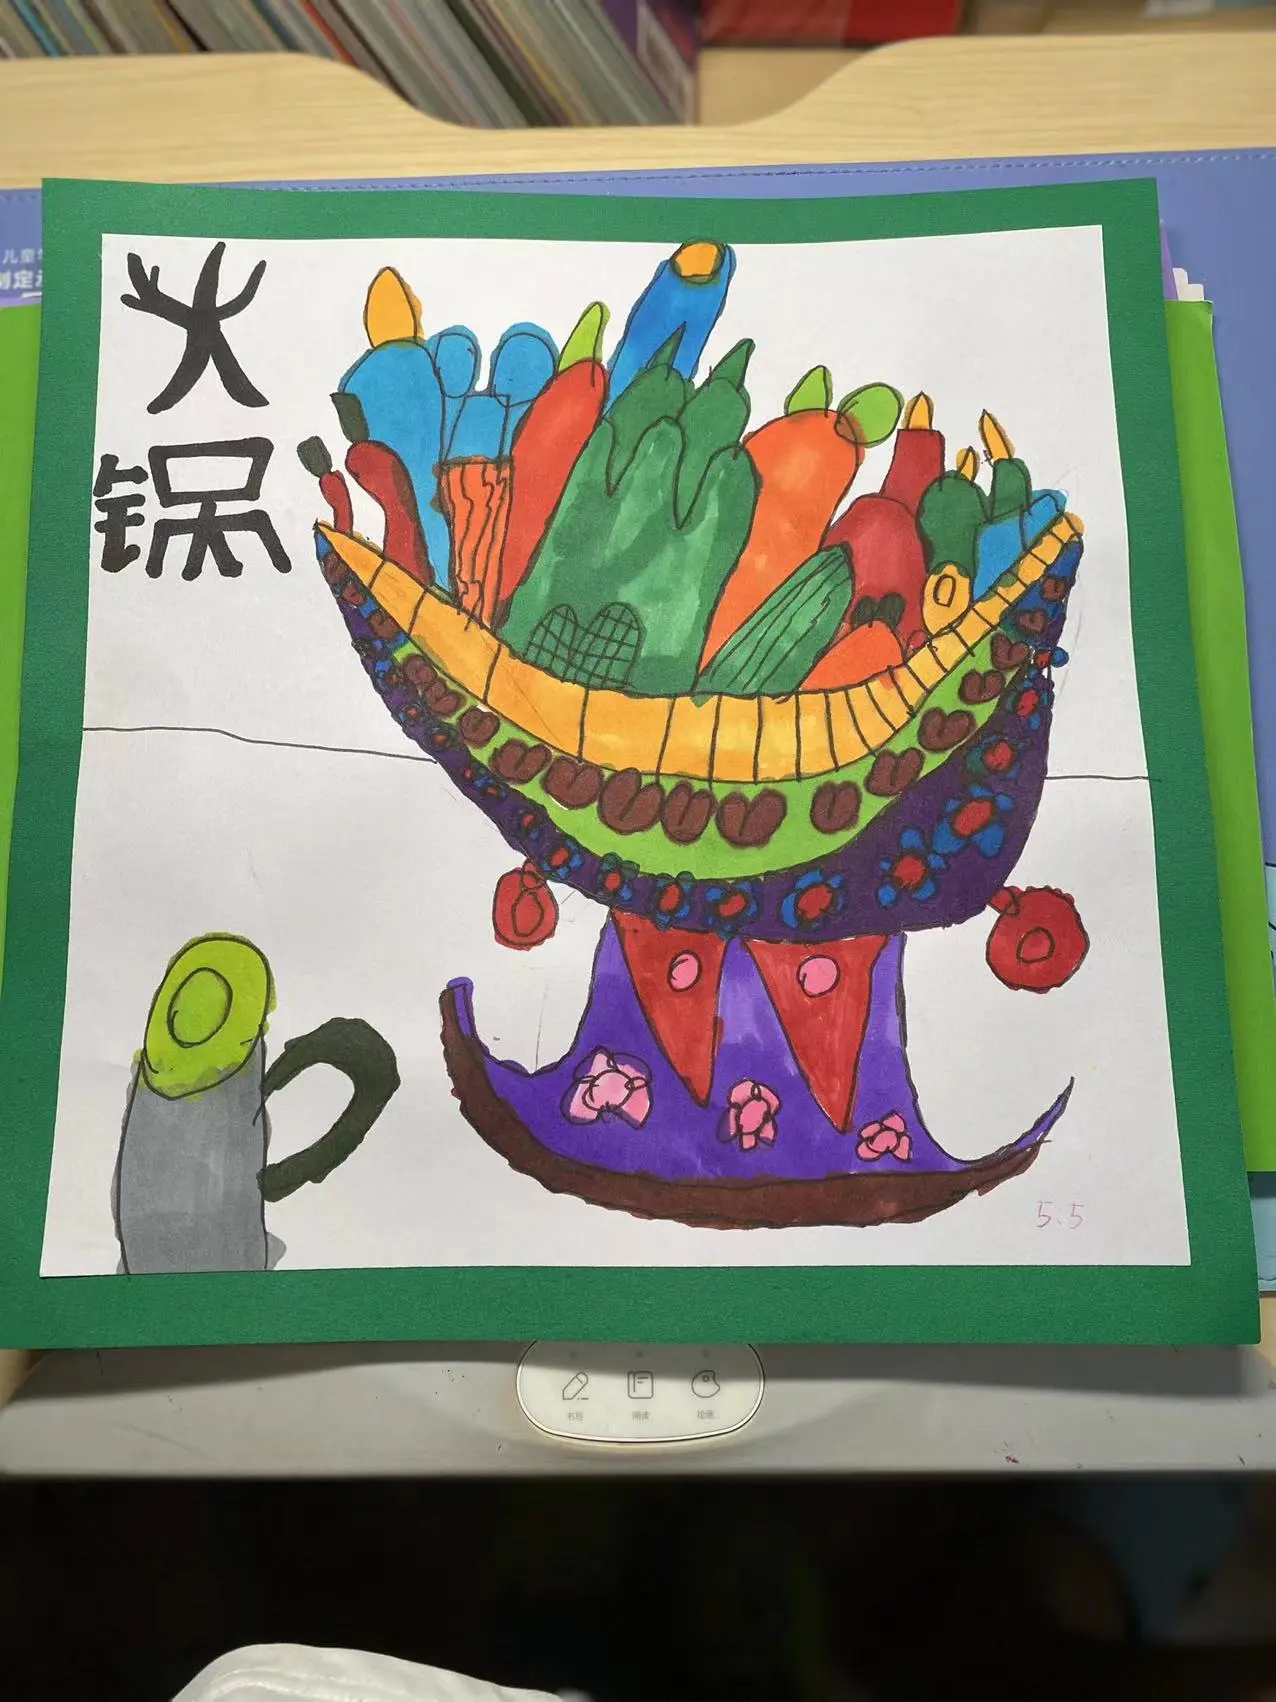 儿童学
制定
火
锅
5.5
书写 阅读 绘画